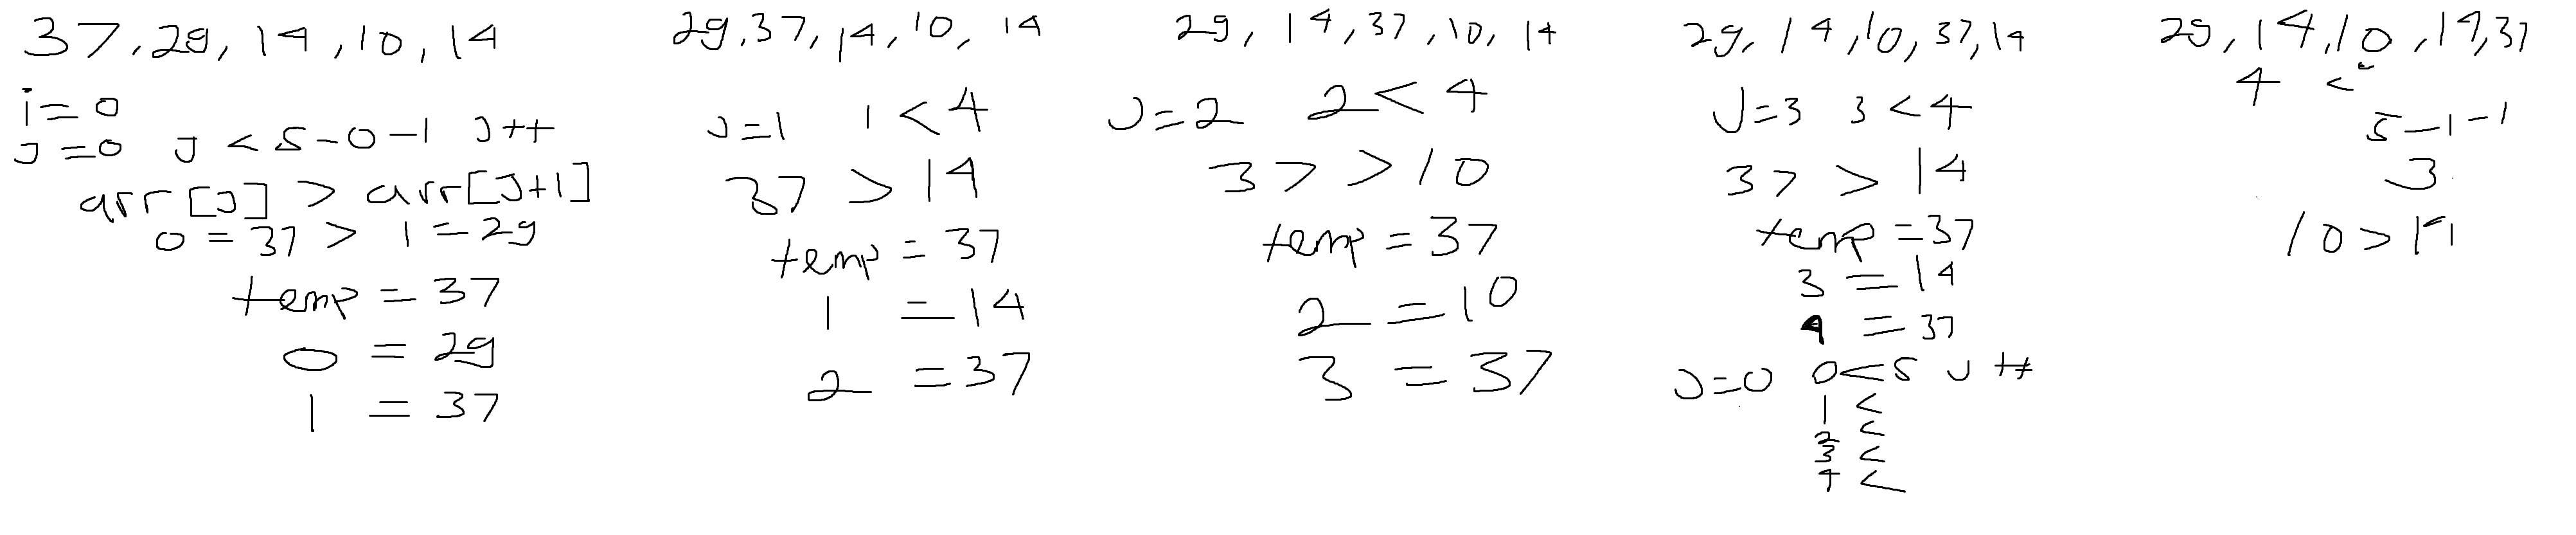 37, 29, 14, 10, 14
i = 0
J = 0 J < 5 - 0 - 1 J++
arr[J] > arr[J+1]
0 = 37 > 1 = 29
temp = 37
0 = 29
1 = 37
29, 37, 14, 10, 14
J = 1 1 < 4
37 > 14
temp = 37
1 = 14
2 = 37
29, 14, 37, 10, 14
J = 2 2 < 4
37 > 10
temp = 37
2 = 10
3 = 37
29, 14, 10, 37, 14
J = 3 3 < 4
37 > 14
temp = 37
3 = 14
4 = 37
J = 0 0 < 5 J ++
1 <
2 <
3 <
4 <
29, 14, 10, 14, 37
4 <
5 - 1 - 1
3
10 >